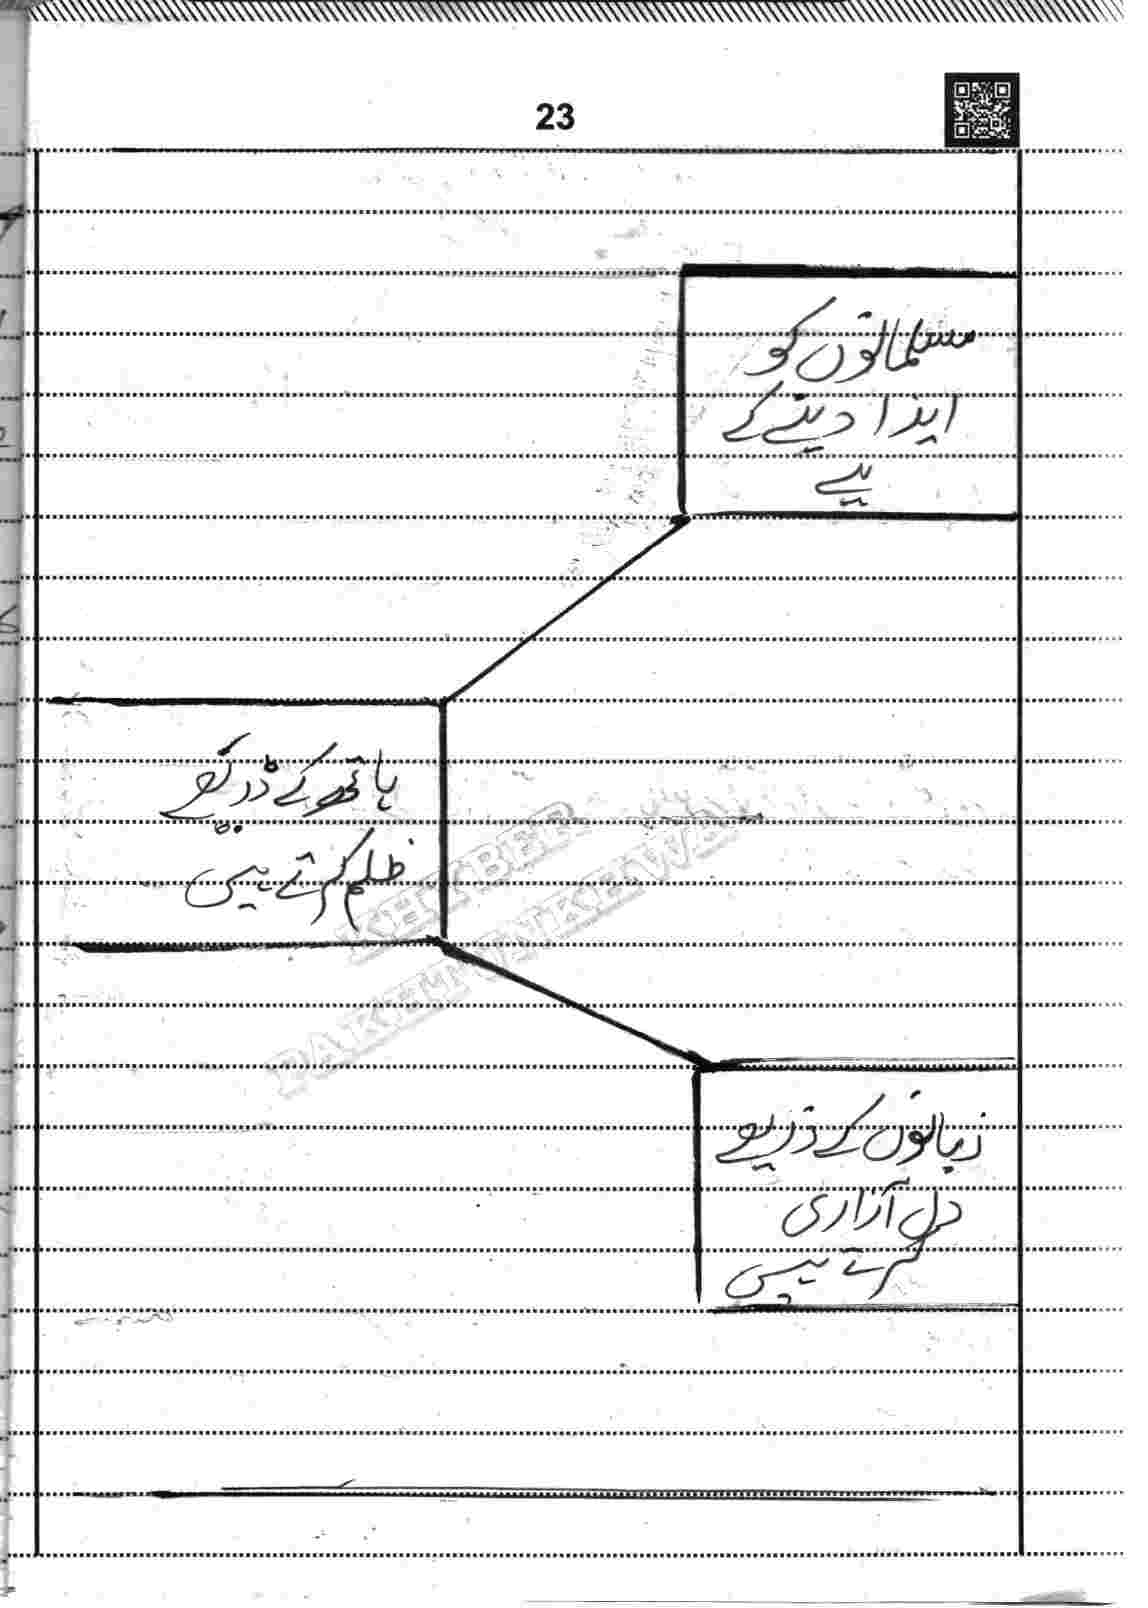 23
مسلمانوں کو
ایذا دینے کے
لیے
ہاتھ کے ذریعے
ظلم کرتے ہیں
KHYBER
PAKHTUNKHWA
زبانوں کے ذریعے
دل آزاری
کرتے ہیں